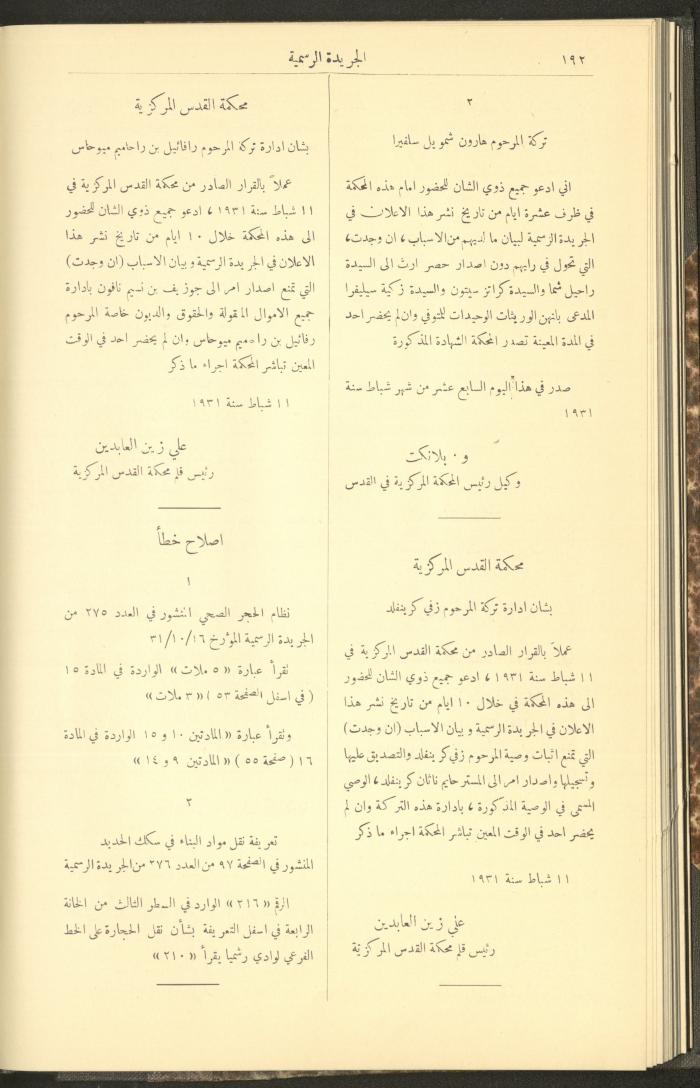 ١٩٢
الجريدة الرسمية
٢
تركة المرحوم هارون شموئيل سلفيرا
اني ادعو جميع ذوي الشان للحضور امام هذه المحكمة
في ظرف عشرة ايام من تاريخ نشر هذا الاعلان في
الجريدة الرسمية لبيان ما لديهم من الاسباب، ان وجدت،
التي تحول في رايهم دون اصدار حصر ارث الى السيدة
راحيل شما والسيدة كراتز سيتون والسيدة زكية سيليفرا
المدعى بانهن الوريثات الوحيدات للمتوفي وان لم يحضر احد
في المدة المعينة تصدر المحكمة الشهادة المذكورة
صدر في هذا اليوم السابع عشر من شهر شباط سنة
١٩٣١
و٠ بلانكت
وكيل رئيس المحكمة المركزية في القدس
محكمة القدس المركزية
بشان ادارة تركة المرحوم زفي كرينفلد
عملاً بالقرار الصادر من محكمة القدس المركزية في
١١ شباط سنة ١٩٣١، ادعو جميع ذوي الشان للحضور
الى هذه المحكمة في خلال ١٠ ايام من تاريخ نشر هذا
الاعلان في الجريدة الرسمية وبيان الاسباب (ان وجدت)
التي تمنع اثبات وصية المرحوم زفي كرينفلد والتصديق عليها
وتسجيلها واصدار امر الى المستر حايم ناثان كرينفلد، الوصي
المسمى في الوصية المذكورة، بادارة هذه التركة وان لم
يحضر احد في الوقت المعين تباشر المحكمة اجراء ما ذكر
١١ شباط سنة ١٩٣١
علي زين العابدين
رئيس قلم محكمة القدس المركزية
محكمة القدس المركزية
بشان ادارة تركة المرحوم رافائيل بن راحاميم ميوحاس
عملاً بالقرار الصادر من محكمة القدس المركزية في
١١ شباط سنة ١٩٣١، ادعو جميع ذوي الشان للحضور
الى هذه المحكمة خلال ١٠ ايام من تاريخ نشر هذا
الاعلان في الجريدة الرسمية وبيان الاسباب (ان وجدت)
التي تمنع اصدار امر الى جوزيف بن نسيم نافون بادارة
جميع الاموال المنقولة والحقوق والديون خاصة المرحوم
رفائيل بن راحميم ميوحاس وان لم يحضر احد في الوقت
المعين تباشر المحكمة اجراء ما ذكر
١١ شباط سنة ١٩٣١
علي زين العابدين
رئيس قلم محكمة القدس المركزية
اصلاح خطأ
١
نظام الحجر الصحي المنشور في العدد ٢٧٥ من
الجريدة الرسمية المؤرخ ٣١/١٠/١٦
تقرأ عبارة «٥ ملات» الواردة في المادة ١٥
(في اسفل الصفحة ٥٣) «٣ ملات»
وتقرأ عبارة «المادتين ١٠ و ١٥ الواردة في المادة
١٦ (صفحة ٥٥) «المادتين ٩ و ١٤»
٢
تعريفة نقل مواد البناء في سكك الحديد
المنشور في الصفحة ٩٧ من العدد ٢٧٦ من الجريدة الرسمية
الرقم «٢١٦» الوارد في السطر الثالث من الخانة
الرابعة في اسفل التعريفة بشأن نقل الحجارة على الخط
الفرعي لوادي رشميا يقرأ «٢١٠»